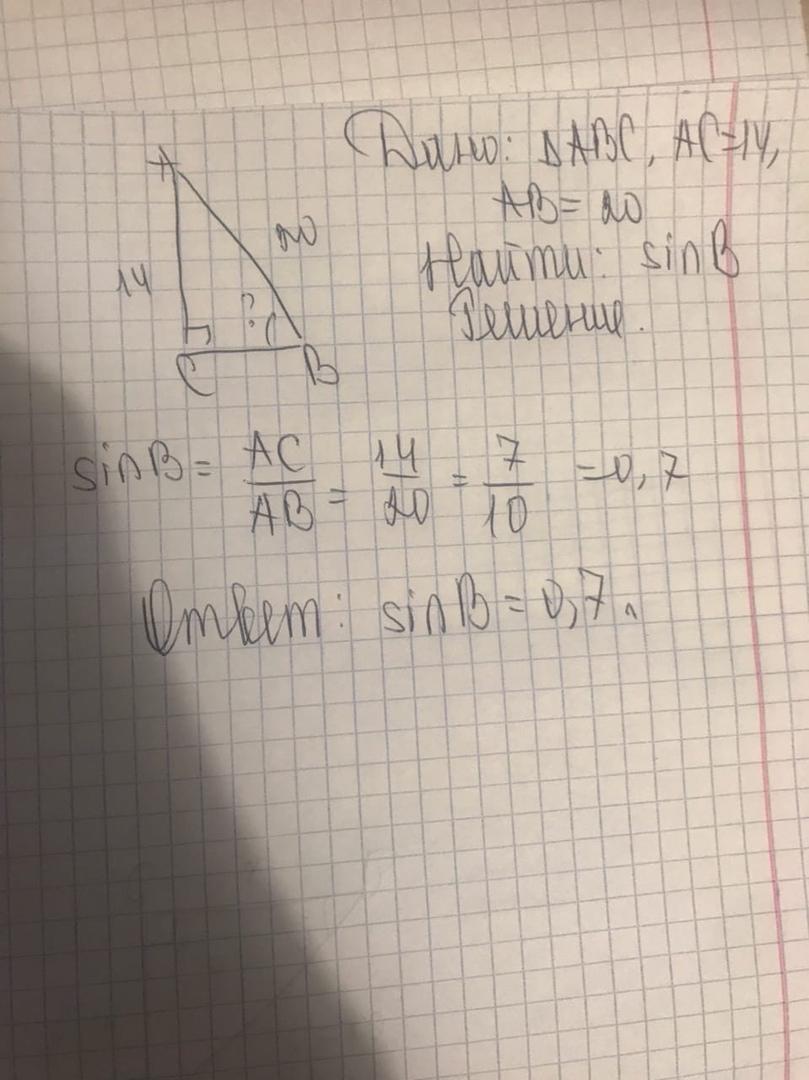 Дано: ΔABC, AC=14,
AB=20
Найти: sinB
Решение.
A
20
14
?
C
B
sinB = AC/AB = 14/20 = 7/10 =0,7
Ответ: sinB = 0,7.